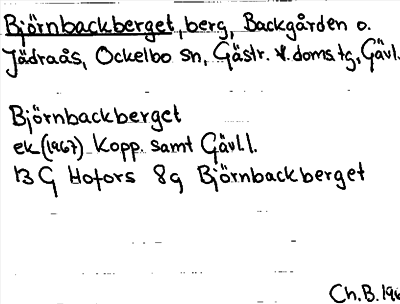 Björnbackberget, berg, Backgården o.
Jädraås, Ockelbo sn, Gästr. v. doms.tg, Gävl.
Björnbackberget
ek (1967) Kopp. samt Gävl l.
13 G Hofors 8g Björnbackberget
Ch.B. 196